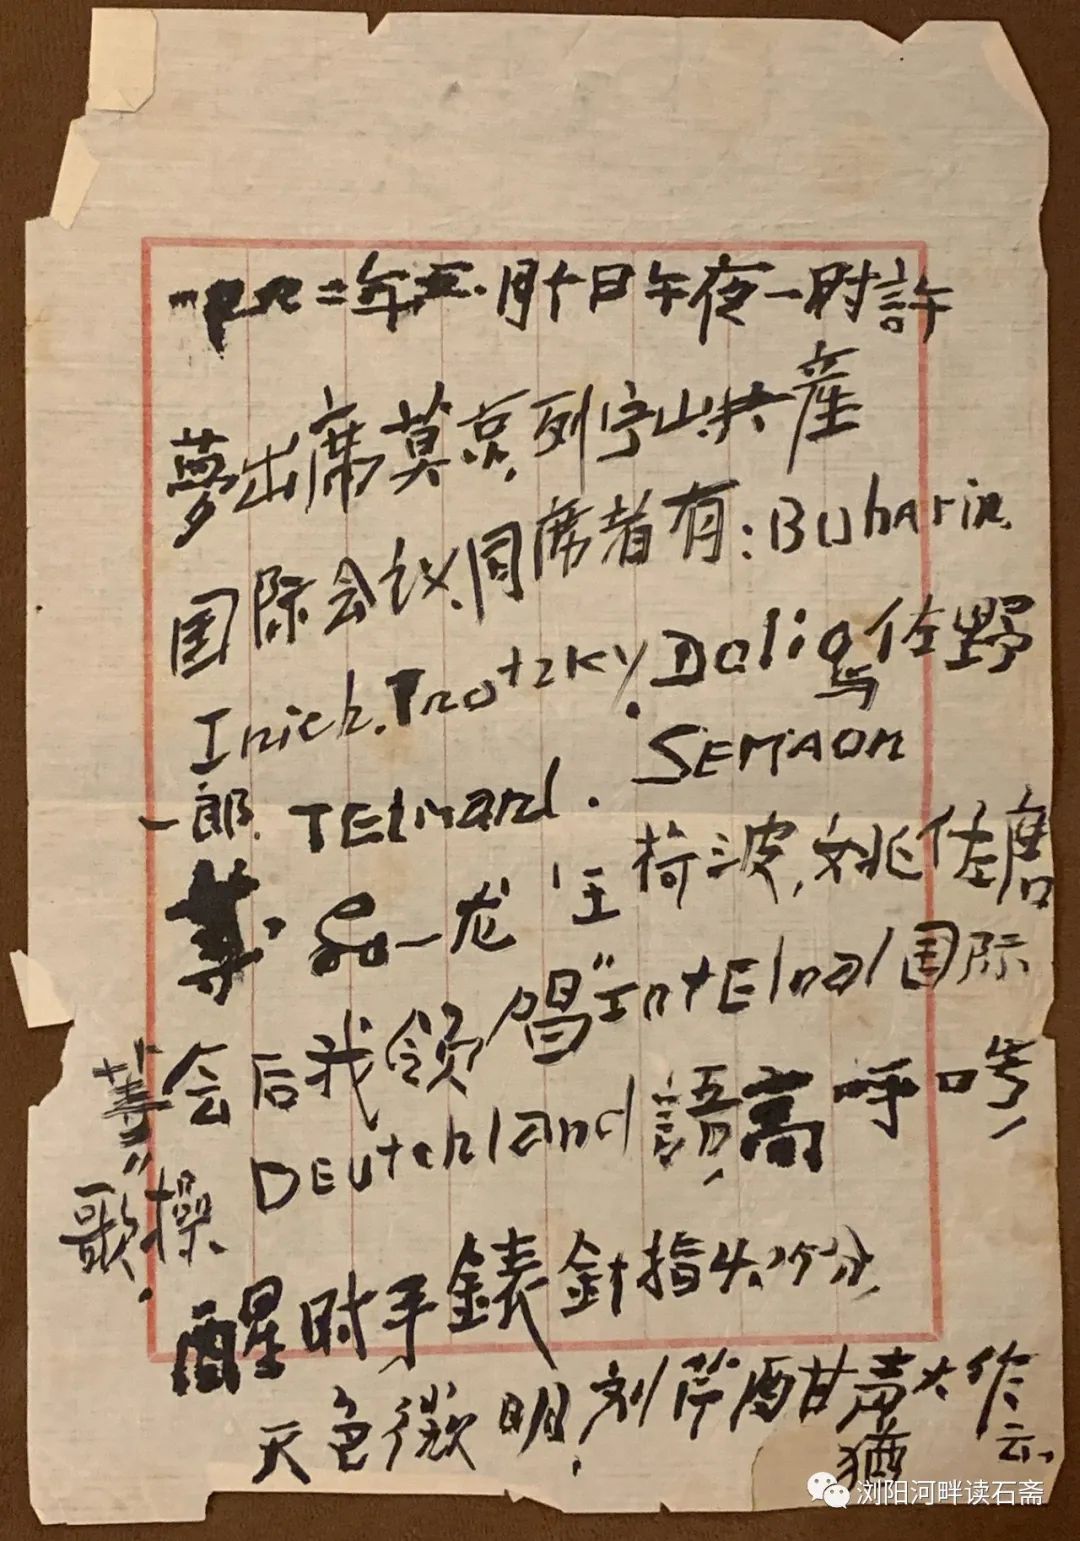 二年五月十日午夜一时許
夢出席莫京列宁山共産
国际会议,同席者有:BUharin
Inich.Trotzky.Dalin与佐野
一郎.TElmand.SEMAOn
一龙 王荷波,姚佐唐
会后我领唱"IntElnal国际
歌",操DEUtchland語,高呼口号,
醒时手錶針指4.25分
天色微明,刘芹酣甘声犹大作云.
浏阳河畔读石斋